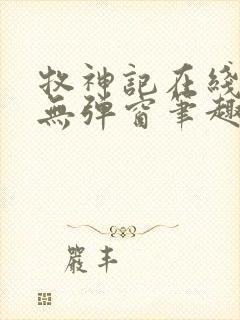 牧神記在綫
無弹窗筆趣
嚴丰